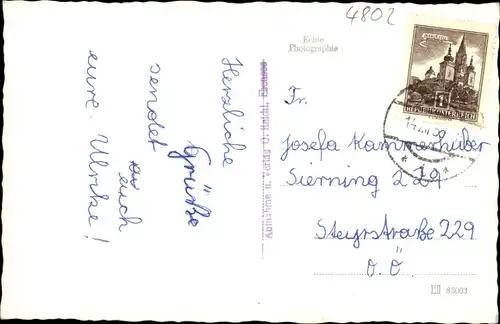 4802
Echte
Photographie
Herzliche
Grüße
sendet
euch
eure Ulrike!
Aufnahme u. Verlag
Fr.
Josefa Kammerhuber
Sierning 229
Steyrstraße 229
O.Ö
REPUBLIK ÖSTERREICH
83003